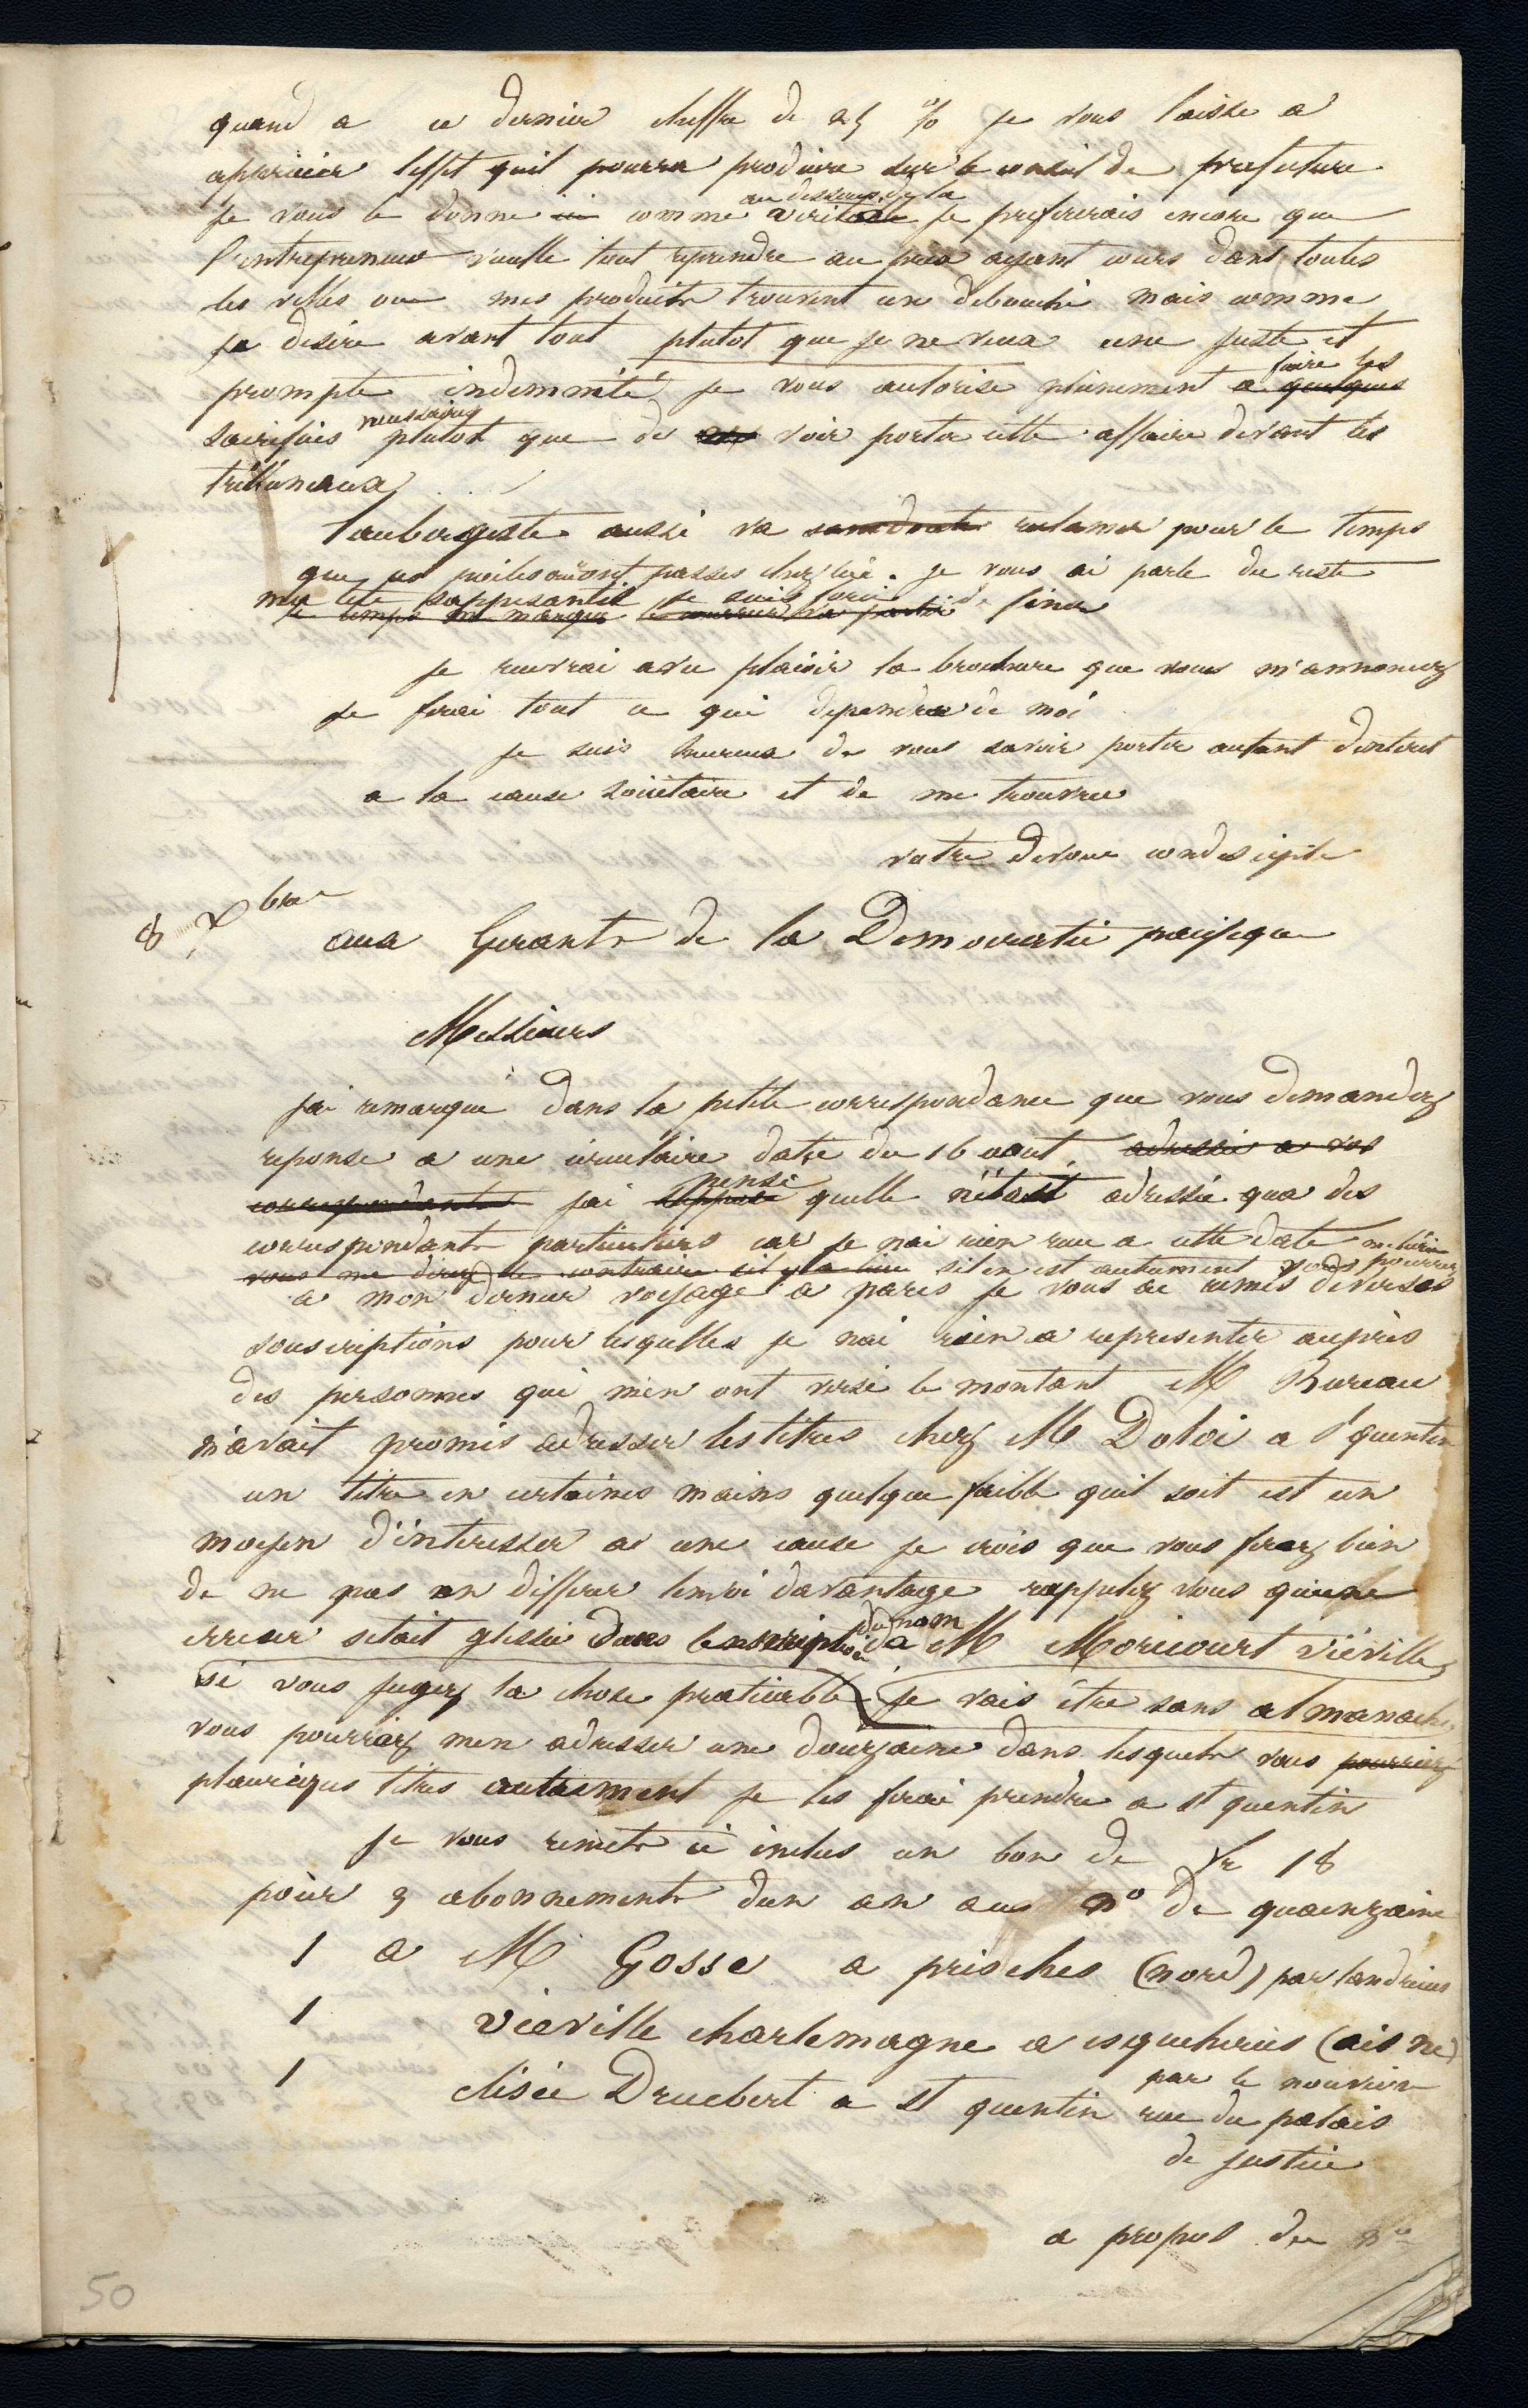 quand a ce dernier cheffre de 25 % je vous laisse a
apprecier leffet quil pourra produire sur le conseil de prefecture
au dessous de la
je vous le donne ici comme veritable je prefererais encore que
l'entrepreneur veuille tout reprendre au prix ayant cours dans toutes
les villes ou mes produits trouvent un debouché mais comme
je desire avant tout plutot que je ne veux une juste et
faire les
prompte indemnité je vous autorise pleinement a quelques
necessaires
sacrifices plutot que de voir porter cette affaire devant les
tribunaux
l'aubergiste aussi va sans doute reclamer pour le temps
que ces poeles auront passés chez lui. je vous ai parlé du reste
ma tete sappesantit je suis forcé
le temps me manque le courrier va partir de finir
je recevrai avec plaisir la brochure que vous m'annoncez
je ferai tout ce qui dependra de moi
je suis heureux de vous savoir porter autant dinteret
a la cause societaire et de me trouver
votre devoué condisciple
8 Xbre
aux Gerants de la Democratie pacifique
Messieurs
jai remarqué dans la petite correspondance que vous demandez
reponse a une circulaire datée du 16 aout adressée a vos
pensé
correspondants jai supposé quelle n'était adressée qua des
correspondants particuliers car je nai rien recu a cette date
vous me direz le contraire sil y a lieu sil en est autrement vous pourrez
a mon dernier voyage a paris je vous ai remis diverses
souscriptions pour lesquelles je nai rien a representer aupres
des personnes qui men ont versé le montant M Bureau
m'avait promis adresser les titres chez M Doloi a St quentin
un titre en certaines mains quelque faible quil soit est un
moyen d'interesser a une cause je crois que vous ferez bien
de ne pas en differer lenvoi davantage rappelez vous quune
du nom
erreur setait glissée dans linscription de M Moricourt viéville
si vous jugez la chose praticable je vais être sans almanachs
vous pourriez men adresser une douzaine dans lesquels vous pourriez
placeriez les titres autrement je les ferai prendre a st quentin
je vous remets ci inclus un bon de fr 18
pour 3 abonnements dun an aux no de quainzaine
1 a M Gosse a prisches (nord) par landrecies
1 viéville charlemagne a esqueheries (aisne)
par le nouvion
1 elisée Druebert a st quentin rue du palais
de justice
a propos du no
50